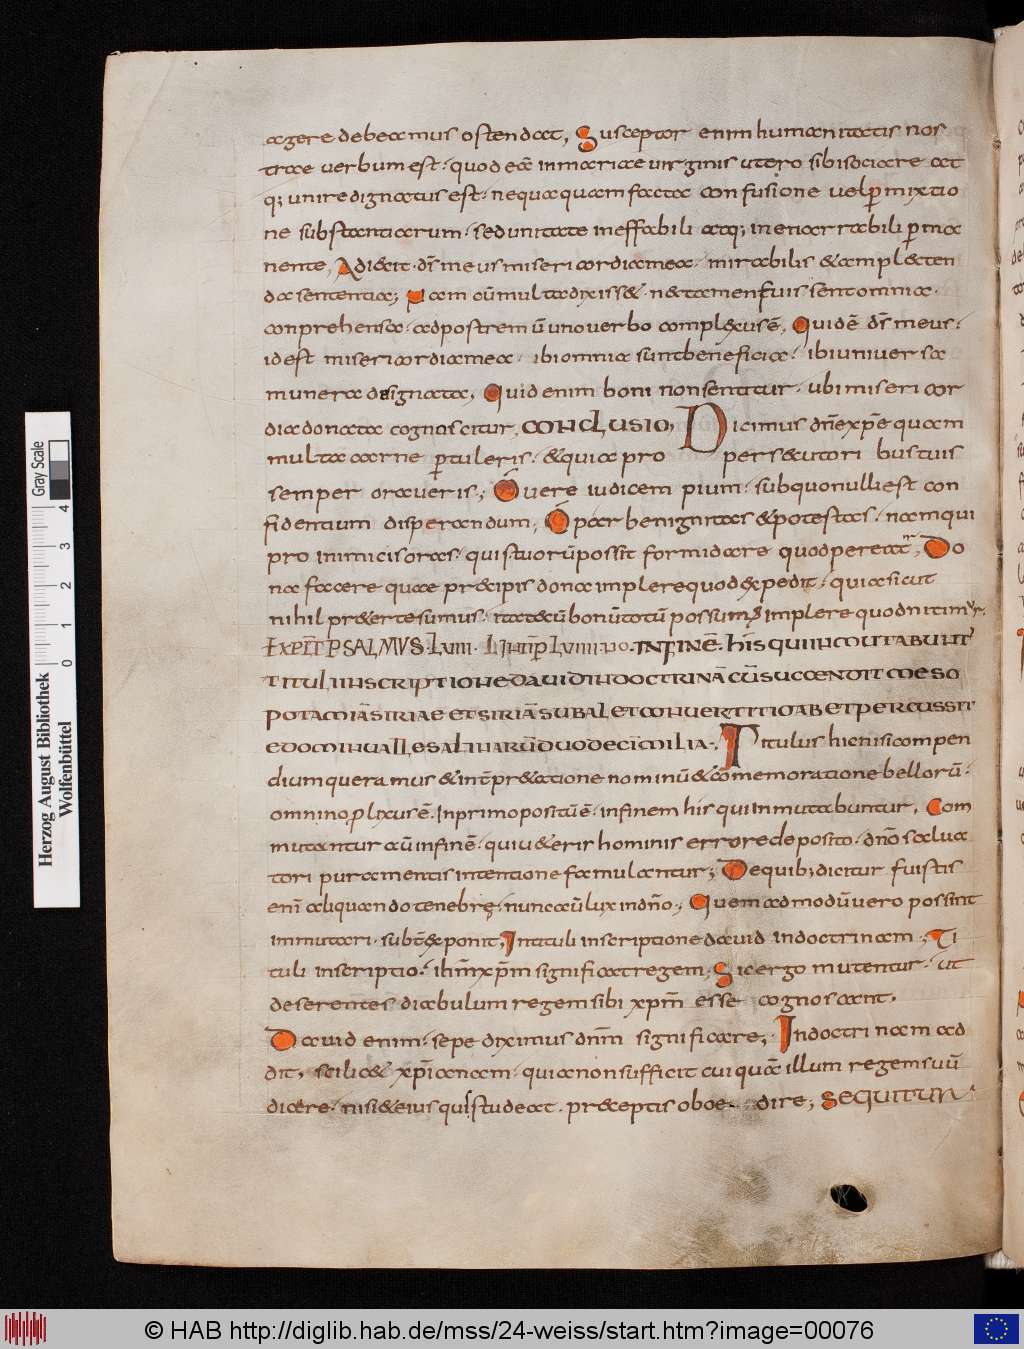 agere debeamus ostendat, Susceptor enim humanitatis nos
trae uerbum est · quod eã inmariae uirginis utero sibi sociare at
q; unire dignatus est · nequaquam facta confusione uel p̱mixtio
ne substantiarum · sed unitate ineffabili atq; inenarrabili p̱ma
nente, Adiecit · d̅s meus misericordia mea · mirabilis & amplecten
da sententia; Nam cũ multa dixiss& · n& tamen fuissent omnia ·
conprehensa · ad postremũ uno uerbo complexus ẽ, Quid ẽ d̅s meus ·
id est misericordia mea · ibi omnia sunt beneficia · ibi uniuersa
munera designata, Quid enim boni non sentitur · ubi misericor
dia donata cognoscitur, CONCLUSIO, Dicimus dñe xp̅e quam
multa carne p̱tuleris · & quia pro persecutoribus tuis
semper oraueris; O uere iudicem pium · sub quo nulli est con
fidentium disperandum, O par benignitas & potestas · namqui
pro inimicis oras · quis tuorũ possit formidare quod pereat, Do
na facere quae praecipis dona implere quod expedit · quia sicut
nihil praeter te sumus · ita tecũ bonũ totũ possumus implere quod nitimur.
EXPLĪT PSALMUS · LVIII · INCIP̅ LVIIII · NO · IN FINẼ · HIS QUI INMUTABUNTᵣ
TITULI INSCRIPTIONE DAUID IN DOCTRINÃ CŨ SUCCENDIT MESO
POTAMIÃ SIRIAE ET SIRIÃ SUBAL ET CONUERTIT IOAB ET PERCUSSIT
EDOM IN UALLE SALINARŨ DUODECĨ MILIA ·, Titulus hic nisi compen
dium queramus & int̅pr&atione nominũ & cõmemoratione bellorũ ·
omnino p̱lixus ẽ · In primo positũ ẽ · in finem his qui inmutabuntur, Com
mutantur aũ in finẽ · qui ueteris hominis errore deposito · dño salua
tori pura mentis intentione famulantur; De quib; dicitur fuistis
eni̅ aliquando tenebrę · nunc aũ lux in dño; Quemadmodũ uero possint
inmutari · subt̅ exponit, In tituli inscriptione dauid in doctrinam; Ti
tuli inscriptio · ih̅m xp̅m significat regem; Sic ergo mutentur · ut
deserentes diabulum regem sibi xp̅m esse cognoscant.
Dauid enim · sepe diximus dñm significare; In doctrinam ad
dit, scilic& xp̅ianam · quia non sufficit cuiquã illum regem suũ
dicere · nisi & eius qui studeat · praeceptis oboe dire; SEQUITUR
Herzog August Bibliothek
Wolfenbüttel
Gray Scale
0 1 2 3 4
© HAB http://diglib.hab.de/mss/24-weiss/start.htm?image=00076